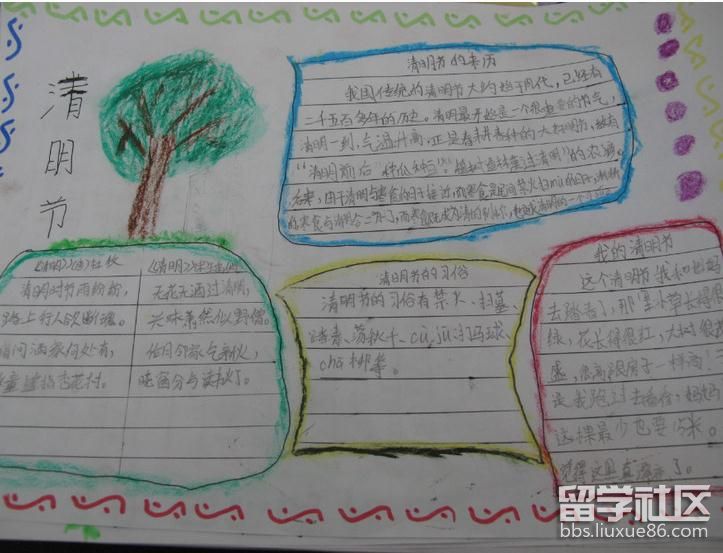 清明节
清明节的来历
我国传统的清明节大约始于周代,已经有
二千五百多年的历史。清明最开始是一个很重要的节气,
清明一到,气温升高,正是春耕春种的大好时节,故有
"清明前后,种瓜种豆"。植树造林莫过清明"的农谚。
后来,由于清明与寒食的日子接近,而寒食是民间禁火扫墓的日子,渐渐的
寒食与清明合二为一了,而寒食
《清明》(唐)杜牧
清明时节雨纷纷,
路上行人欲断魂。
借问酒家何处有,
牧童遥指杏花村。
《清明》
无花无酒过清明,
兴味萧然似野僧。
昨日邻家乞新火,
晓窗分与读书灯。
清明节的习俗
清明节的习俗有禁火、扫墓、
踏青、荡秋千、cù jū、打马球、
chā柳等。
我的清明节
这个清明节我和
去踏青了,那里小草长得很
绿,花长得很红,大树很
盛,很高跟房子一样高!
是我跑过去看看,妈妈
这棵最少也要15米。
觉得这里真 了。
留学社区
bbs.liuxue86.com